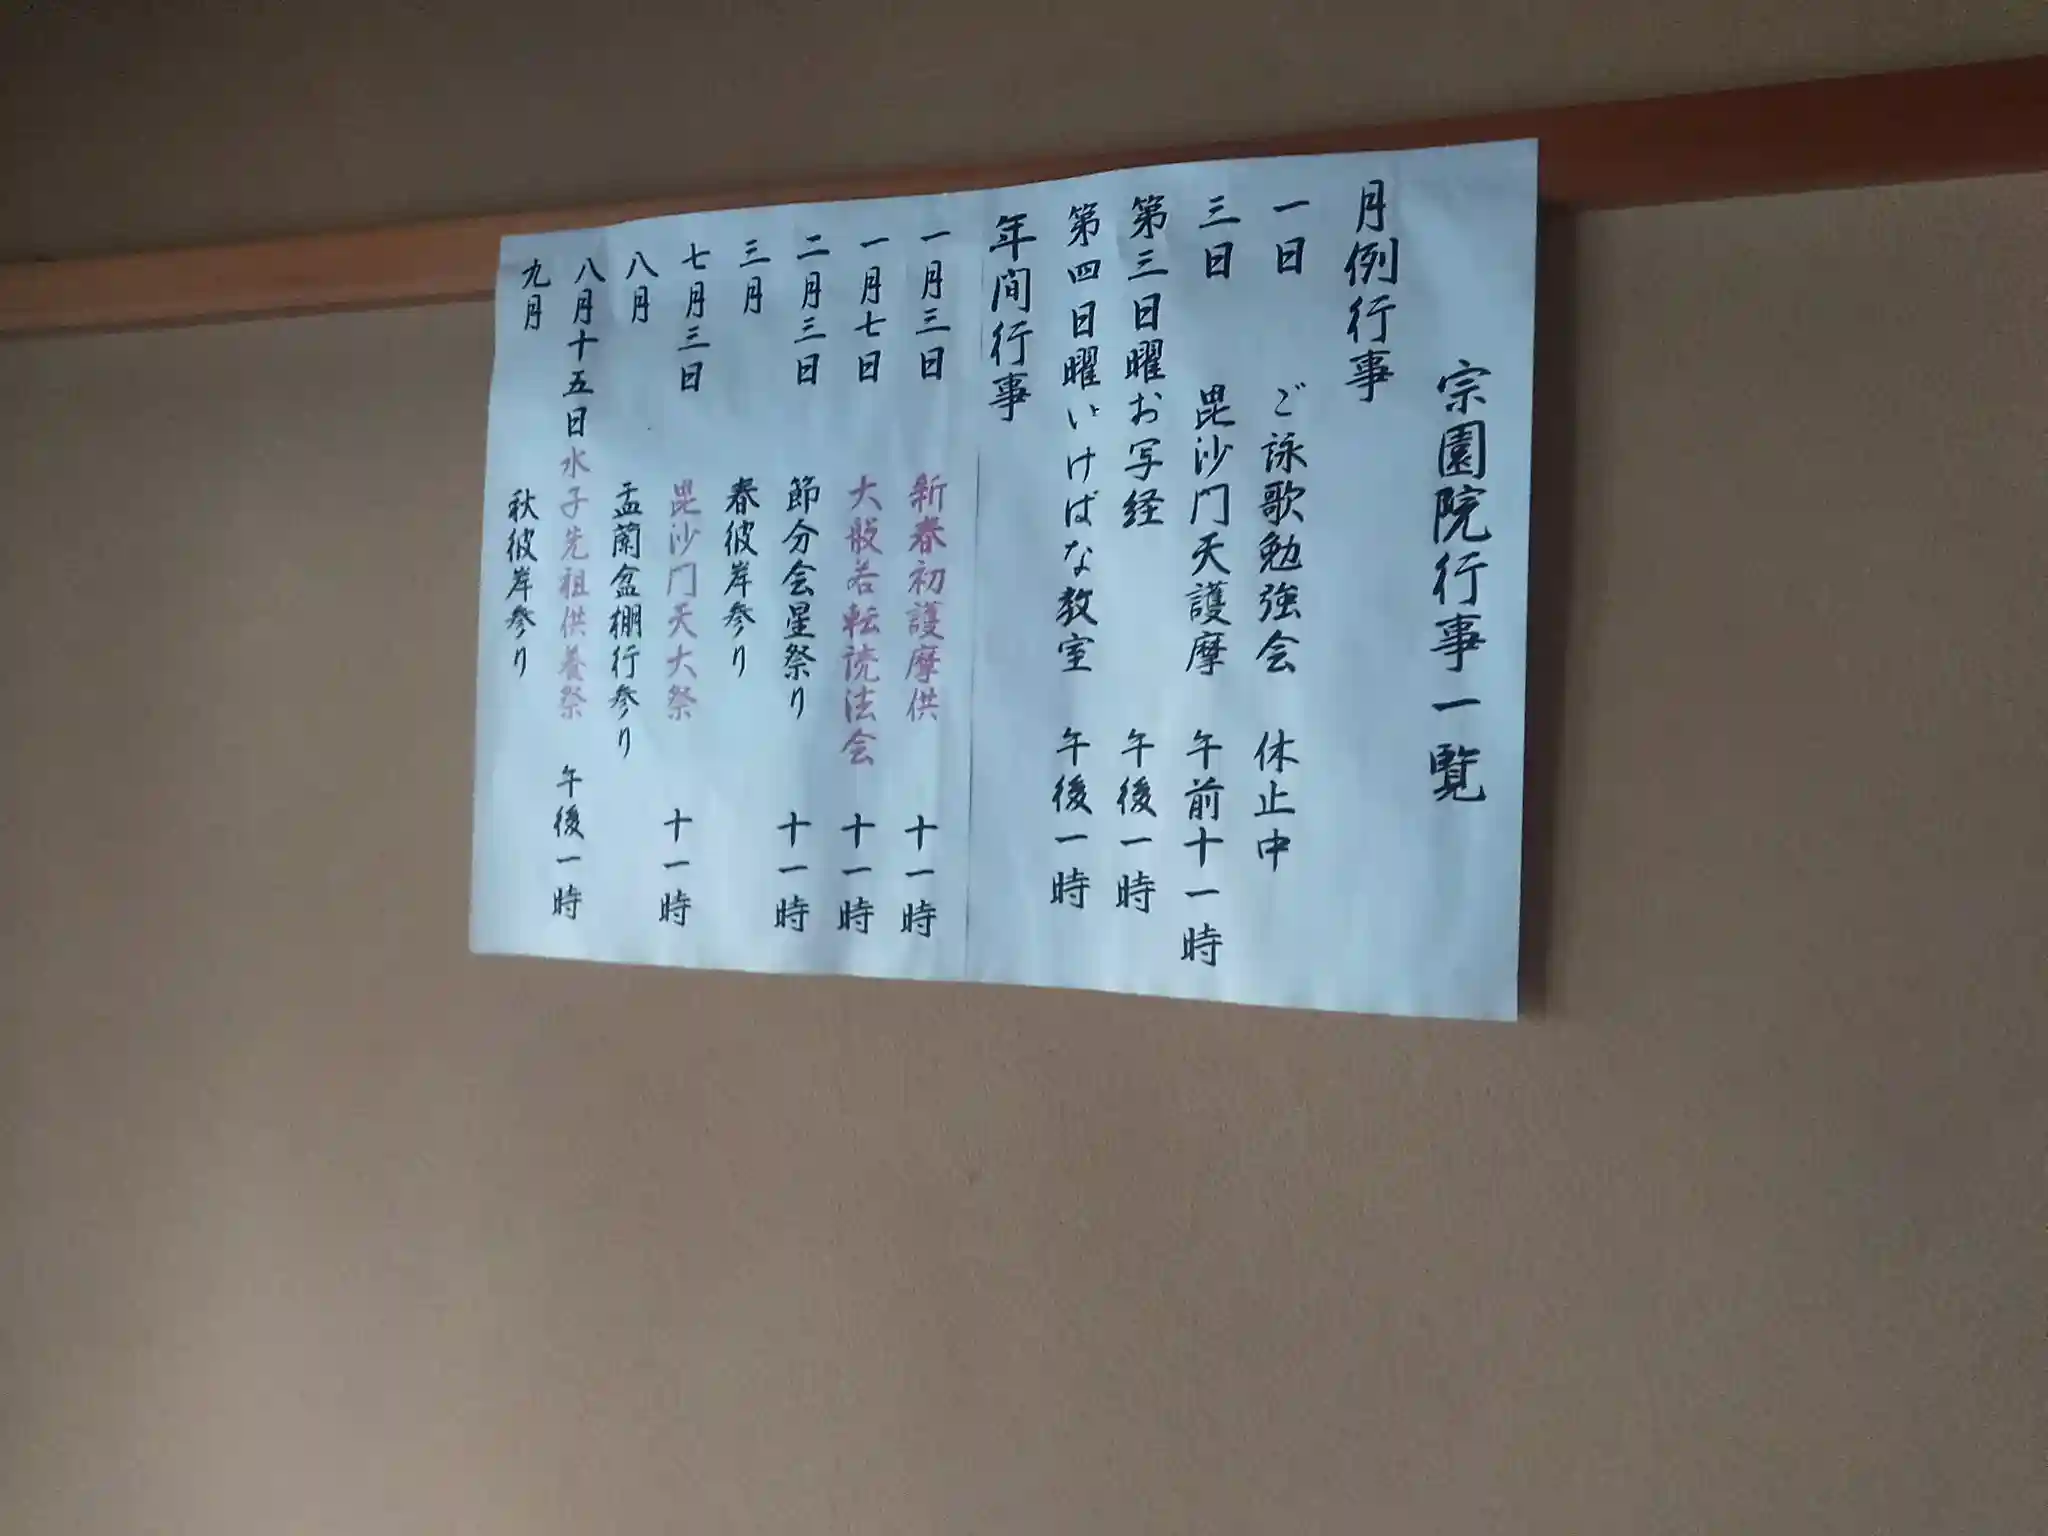 宗園院行事一覧
月例行事
一日 ご詠歌勉強会 休止中
三日 毘沙門天護摩 午前十一時
第三日曜お写経 午後一時
第四日曜いけばな教室 午後一時
年間行事
一月三日 新春初護摩供 十一時
一月七日 大般若転読法会 十一時
二月三日 節分会星祭り 十一時
三月 春彼岸参り
七月三日 毘沙門天大祭 十一時
八月 盂蘭盆棚行参り
八月十五日水子先祖供養祭 午後一時
九月 秋彼岸参り